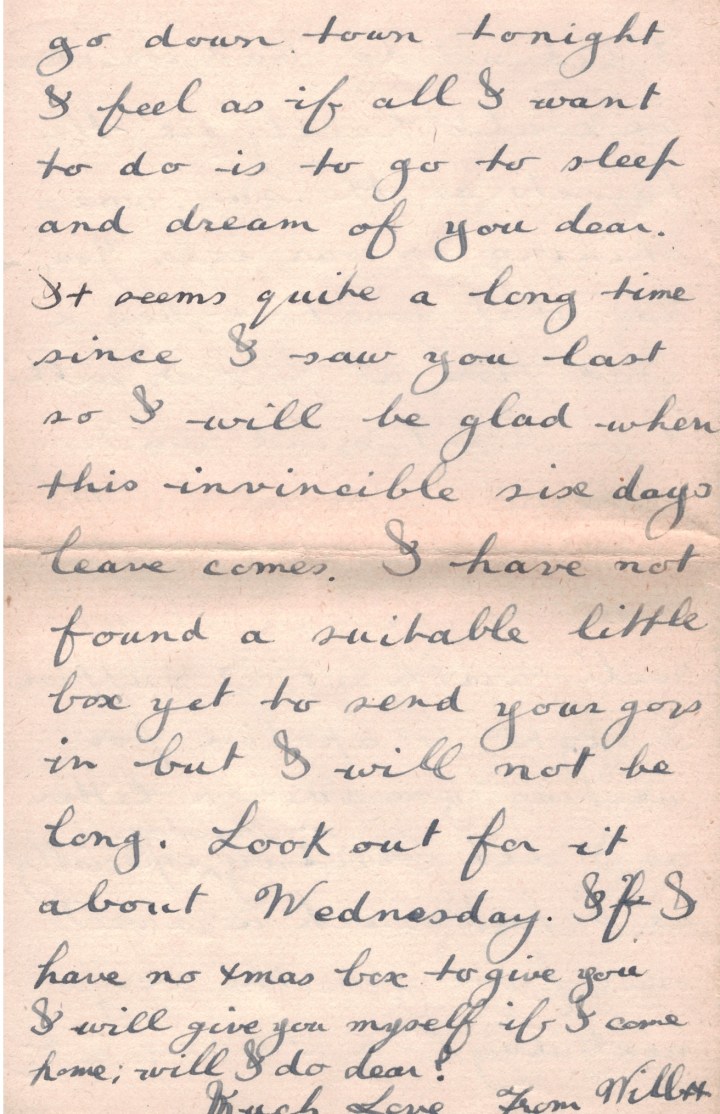 go down town tonight
I feel as if all I want
to do is to go to sleep
and dream of you dear.
It seems quite a long time
since I saw you last
so I will be glad when
this invincible six days
leave comes. I have not
found a suitable little
box yet to send your
in but I will not be
long. Look out for it
about Wednesday. If I
have no Xmas box to give you
I will give you myself if I come
home; will I do dear?
Much Love From Will